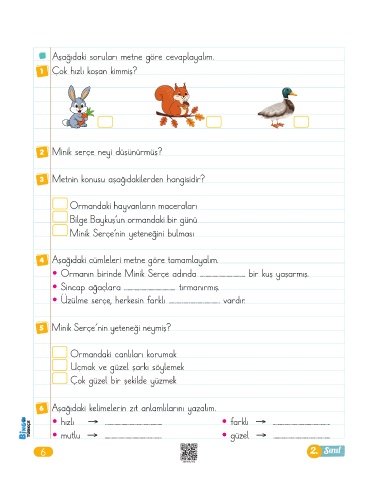 Aşağıdaki soruları metne göre cevaplayalım.
1 Çok hızlı koşan kimmiş?
2 Minik serçe neyi düşünürmüş?
3 Metnin konusu aşağıdakilerden hangisidir?
Ormandaki hayvanların maceraları
Bilge Baykuş'un ormandaki bir günü
Minik Serçe'nin yeteneğini bulması
4 Aşağıdaki cümleleri metne göre tamamlayalım.
• Ormanın birinde Minik Serçe adında ______ bir kuş yaşarmış.
• Sincap ağaçlara ______ tırmanırmış.
• Üzülme serçe, herkesin farklı ______ vardır.
5 Minik Serçe'nin yeteneği neymiş?
Ormandaki canlıları korumak
Uçmak ve güzel şarkı söylemek
Çok güzel bir şekilde yüzmek
6 Aşağıdaki kelimelerin zıt anlamlılarını yazalım.
• hızlı → ______ • farklı → ______
• mutlu → ______ • güzel → ______
6
2. Sınıf